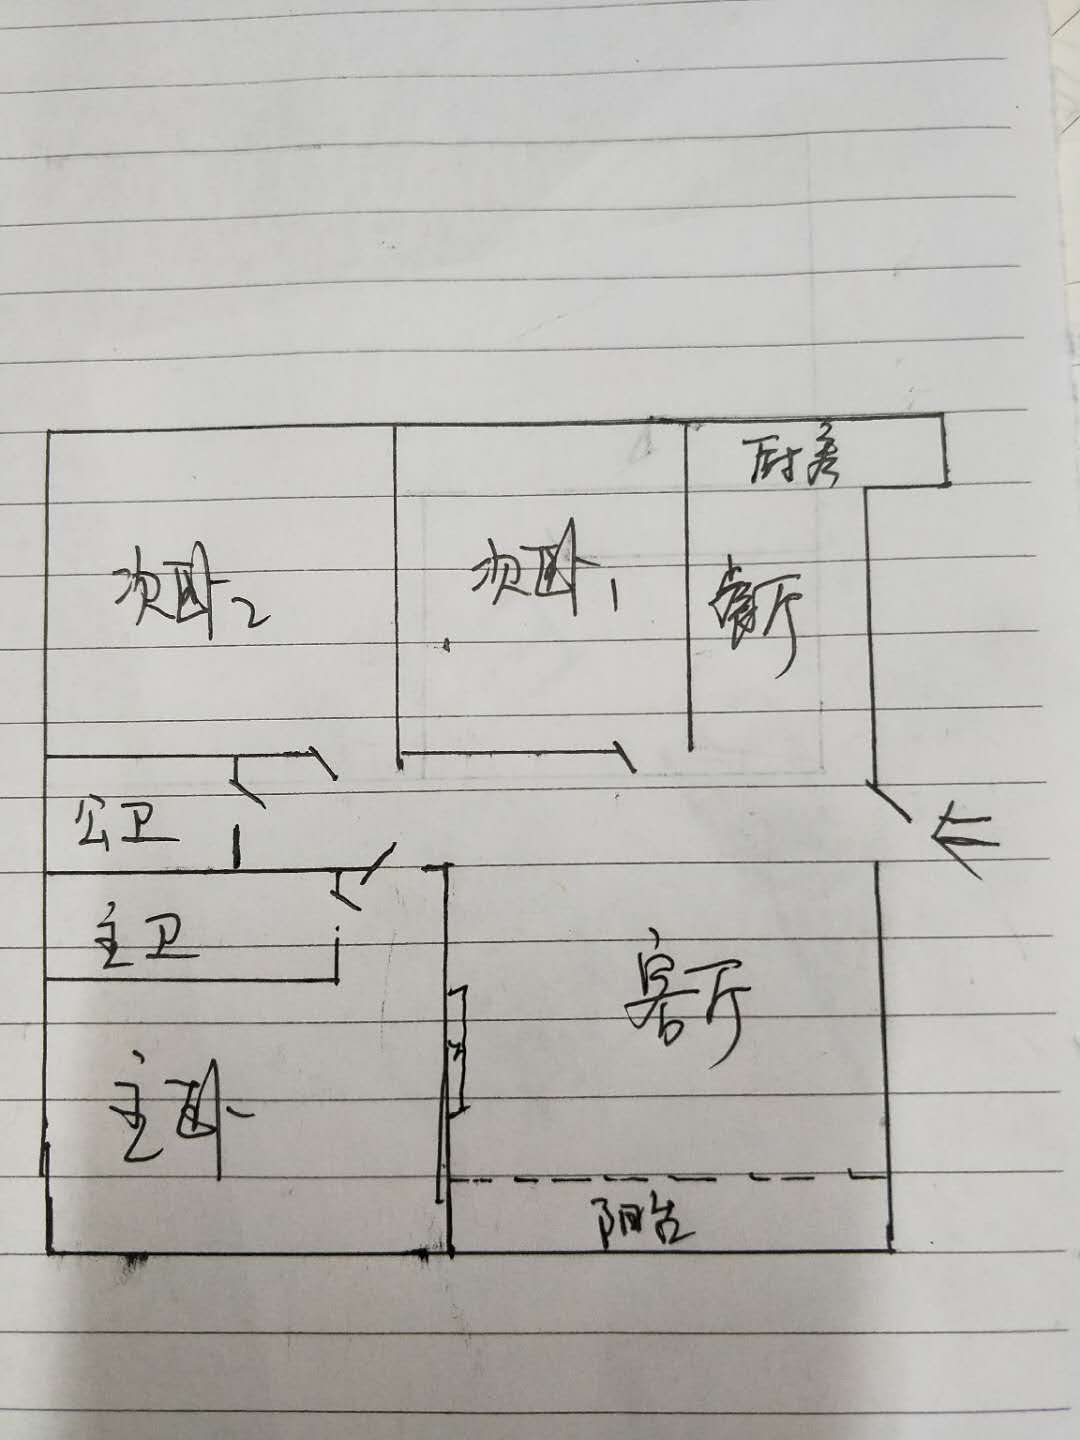 厨房
次卧2
次卧1
餐厅
公卫
主卫
客厅
主卧
阳台